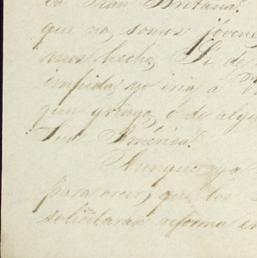 la Gran Bretaña.
que no somos jóvene
mos hecho, Si de
impida; yo iria á
gun gringo, ó de algu
Sud América.
Aunque ya
para creer, que los
solicitaran reforma en